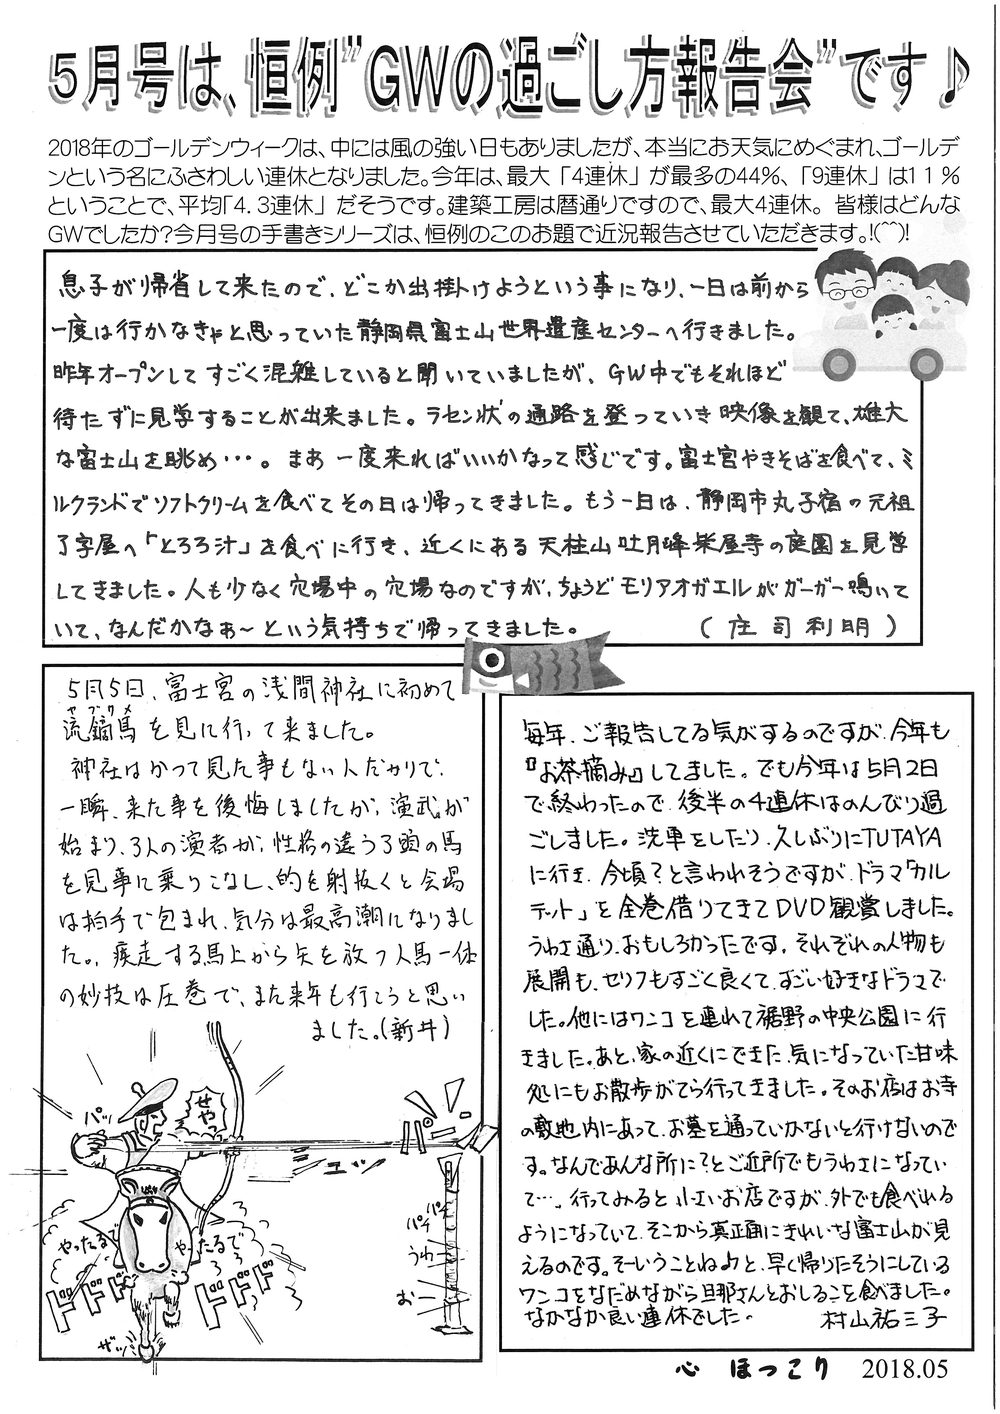 5月号は、恒例”GWの過ごし方報告会”です♪
2018年のゴールデンウィークは、中には風の強い日もありましたが、本当にお天気にめぐまれ、ゴールデ
ンという名にふさわしい連休となりました。今年は、最大「4連休」が最多の44%、「9連休」は11%
ということで、平均「4.3連休」だそうです。建築工房は暦通りですので、最大4連休。皆様はどんな
GWでしたか?今月号の手書きシリーズは、恒例のこのお題で近況報告させていただきます。!(^^)!
息子が帰省して来たので、どこか出掛けようという事になり、一日は前から
一度は行かなきゃと思っていた静岡県富士山世界遺産センターへ行きました。
昨年オープンしてすごく混雑していると聞いていましたが、GW中でもそれほど
待たずに見学することが出来ました。ラセン状の通路を登っていき映像を観て、雄大
な富士山を眺め・・・。まあ一度来ればいいかなって感じです。富士宮やきそばを食べて、ミ
ルクランドでソフトクリームを食べてその日は帰ってきました。もう一日は、静岡市丸子宿の元祖
丁字屋へ「とろろ汁」を食べに行き、近くにある天柱山吐月峰柴屋寺の庭園を見学
してきました。人も少なく穴場中の穴場なのですが、ちょうどモリアオガエルがガーガー鳴いて
いて、なんだかなぁ～という気持ちで帰ってきました。 (庄司利明)
5月5日、富士宮の浅間神社に初めて
ヤブサメ
流鏑馬を見に行って来ました。
神社はかつて見た事もない人だかりで、
一瞬、来た事を後悔しましたが、演武が
始まり、3人の演者が、性格の違う3頭の馬
を見事に乗りこなし、的を射抜くと会場
は拍手で包まれ、気分は最高潮になりまし
た。疾走する馬上から矢を放つ人馬一体
の妙技は圧巻で、また来年も行こうと思い
ました。(新井)
パッ
せやっ
パチ
パチ
うわー
おー
やったるで
やったるでぇ
ドドド
ドドドド
ザザッ
毎年、ご報告してる気がするのですが、今年も
『お茶摘み』してました。でも今年は5月2日
で終わったので、後半の4連休はのんびり過
ごしました。洗車をしたり、久しぶりにTUTAYA
に行き、今頃?と言われそうですが、ドラマ「カル
テット」を全巻借りてきてDVD観賞しました。
うわさ通り、おもしろかったです。それぞれの人物も
展開も、セリフもすごく良くて、すごい好きなドラマで
した。他にはワンコを連れて裾野の中央公園に行
きました。あと、家の近くにできた、気になっていた甘味
処にもお散歩がてら行ってきました。そのお店はお寺
の敷地内にあって、お墓を通っていかないと行けないので
す。なんであんな所に?とご近所でもうわさになってい
て…。行ってみると小さいお店ですが、外でも食べれる
ようになっていて、そこから真正面にきれいな富士山が見
えるのです。そーいうことね♪と、早く帰りたそうにしている
ワンコをなだめながら旦那さんとおしるこを食べました。
なかなか良い連休でした。 村山祐三子
心 ほっこり 2018.05